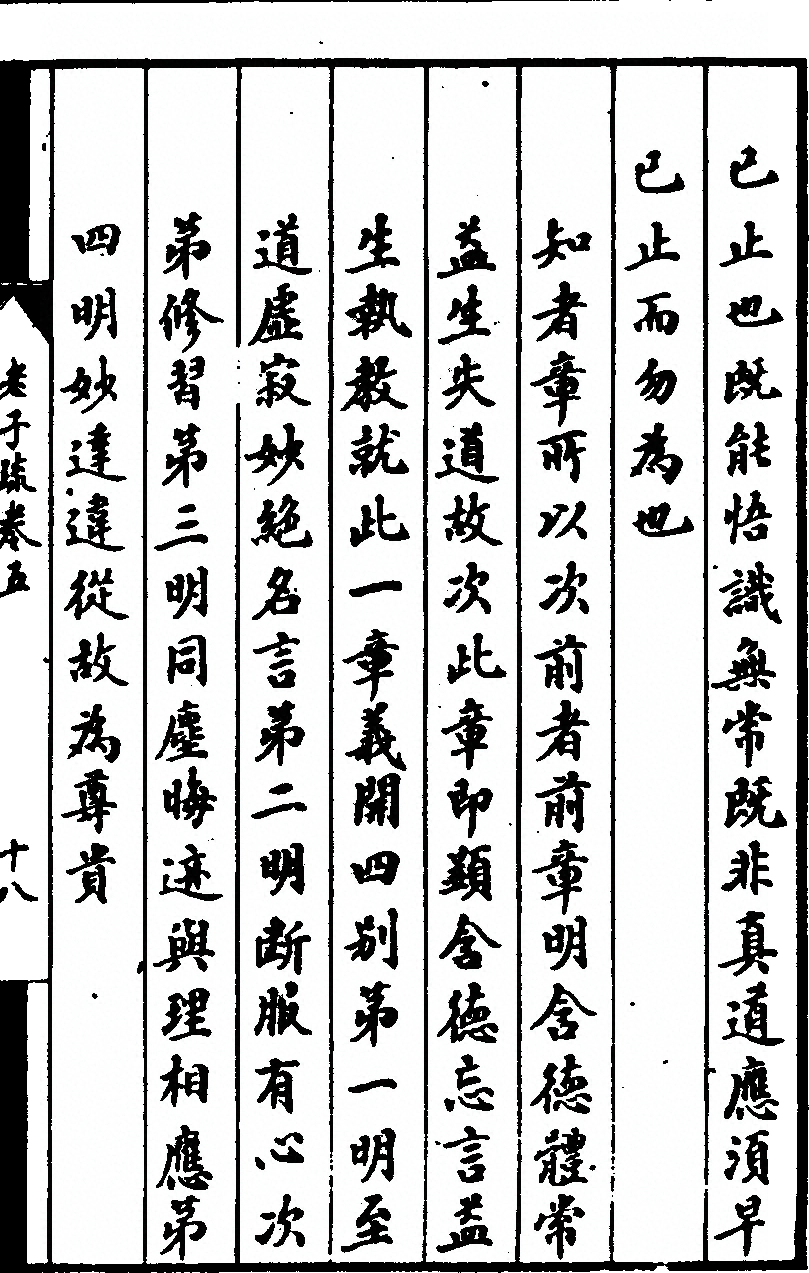 已止也既能悟識無常既非真道應須早
已止而勿為也
知者章所以次前者前章明含德體常
益生失道故次此章即顯含德忘言益
生執教就此一章義開四別第一明至
道虛寂妙絕名言第二明断服有心次
第修習第三明同塵晦迹與理相應第
四明妙達違從故為尊貴
老子疏卷五
十八